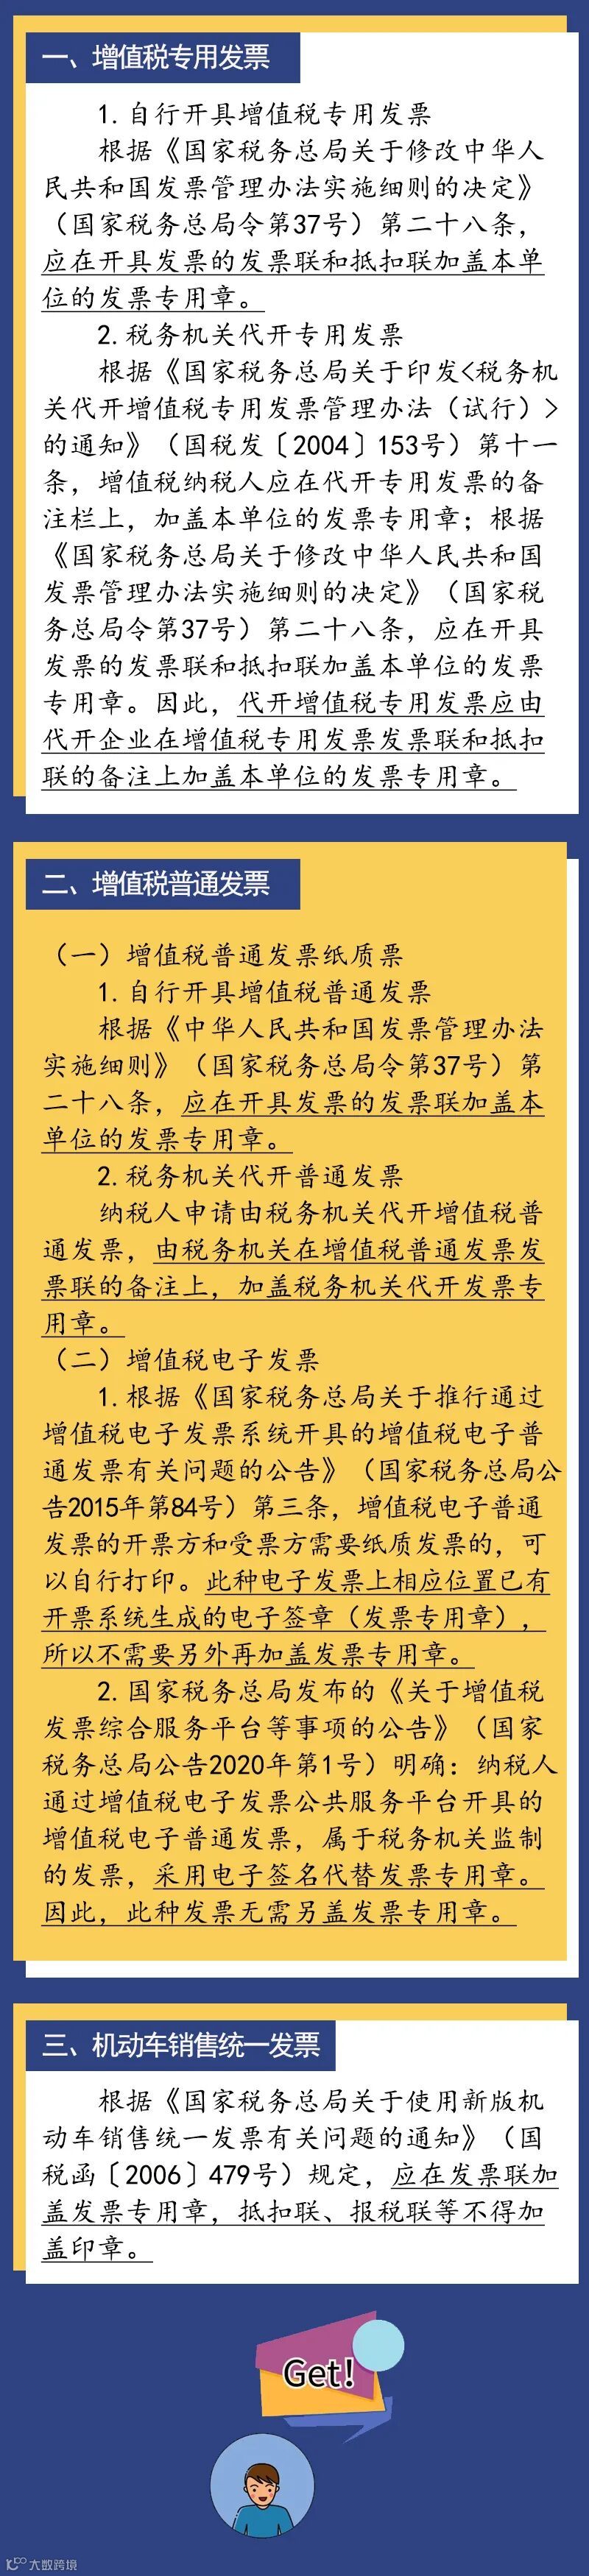 一、增值税专用发票
1.自行开具增值税专用发票
根据《国家税务总局关于修改中华人
民共和国发票管理办法实施细则的决定》
（国家税务总局令第37号）第二十八条，
应在开具发票的发票联和抵扣联加盖本单
位的发票专用章。
2.税务机关代开专用发票
根据《国家税务总局关于印发<税务机
关代开增值税专用发票管理办法（试行）>
的通知》（国税发〔2004〕153号）第十一
条，增值税纳税人应在代开专用发票的备
注栏上，加盖本单位的发票专用章；根据
《国家税务总局关于修改中华人民共和国
发票管理办法实施细则的决定》（国家税
务总局令第37号）第二十八条，应在开具
发票的发票联和抵扣联加盖本单位的发票
专用章。因此，代开增值税专用发票应由
代开企业在增值税专用发票发票联和抵扣
联的备注上加盖本单位的发票专用章。
二、增值税普通发票
（一）增值税普通发票纸质票
1.自行开具增值税普通发票
根据《中华人民共和国发票管理办法
实施细则》（国家税务总局令第37号）第
二十八条，应在开具发票的发票联加盖本
单位的发票专用章。
2.税务机关代开普通发票
纳税人申请由税务机关代开增值税普
通发票，由税务机关在增值税普通发票发
票联的备注上，加盖税务机关代开发票专
用章。
（二）增值税电子发票
1.根据《国家税务总局关于推行通过
增值税电子发票系统开具的增值税电子普
通发票有关问题的公告》（国家税务总局公
告2015年第84号）第三条，增值税电子普通
发票的开票方和受票方需要纸质发票的，可
以自行打印。此种电子发票上相应位置已有
开票系统生成的电子签章（发票专用章），
所以不需要另外再加盖发票专用章。
2.国家税务总局发布的《关于增值税
发票综合服务平台等事项的公告》（国家
税务总局公告2020年第1号）明确：纳税人
通过增值税电子发票公共服务平台开具的
增值税电子普通发票，属于税务机关监制
的发票，采用电子签名代替发票专用章。
因此，此种发票无需另盖发票专用章。
三、机动车销售统一发票
根据《国家税务总局关于使用新版机
动车销售统一发票有关问题的通知》（国
税函〔2006〕479号）规定，应在发票联加
盖发票专用章，抵扣联、报税联等不得加
盖印章。
Get!
大数跨境